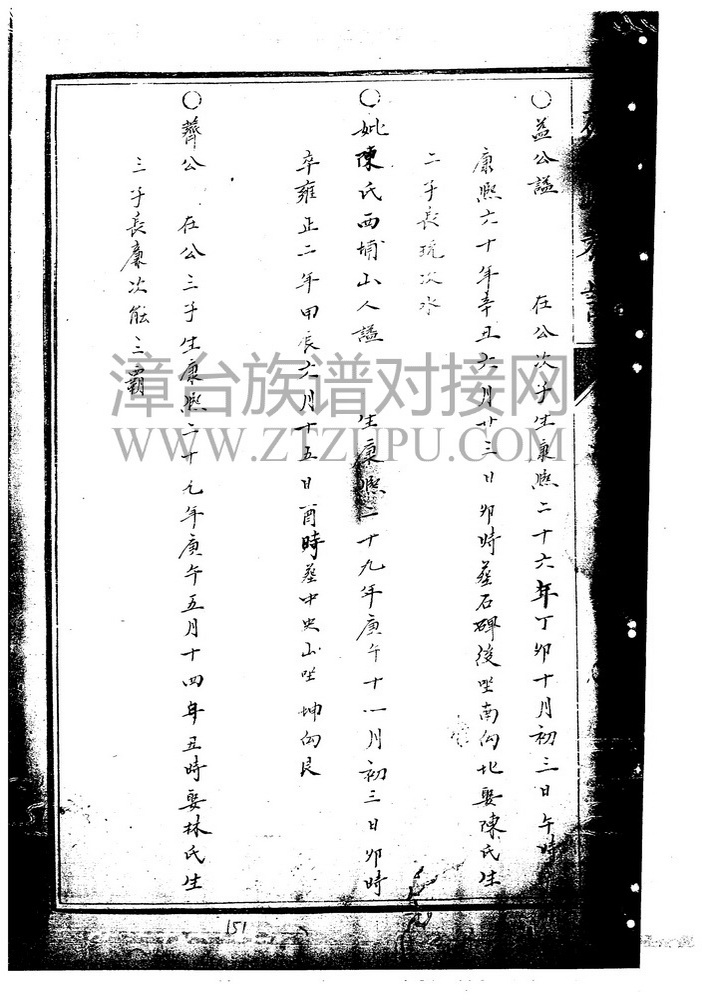 ○益公諡 在公次子生康熙二十六年丁卯十月初三日午時
康熙六十年辛丑六月廿三日卯時葬石碑後坐南向北娶陳氏生
二子長琉次水
○妣陳氏西埔山人諡 生康熙二十九年庚午十一月初三日卯時
卒雍正二年甲辰六月十五日酉時葬中央山坐坤向艮
○薺公 在公三子生康熙二十九年庚午五月十四年丑時娶林氏生
三子長廉次能三霸
漳台族谱对接网
WWW.ZTZUPU.COM
151